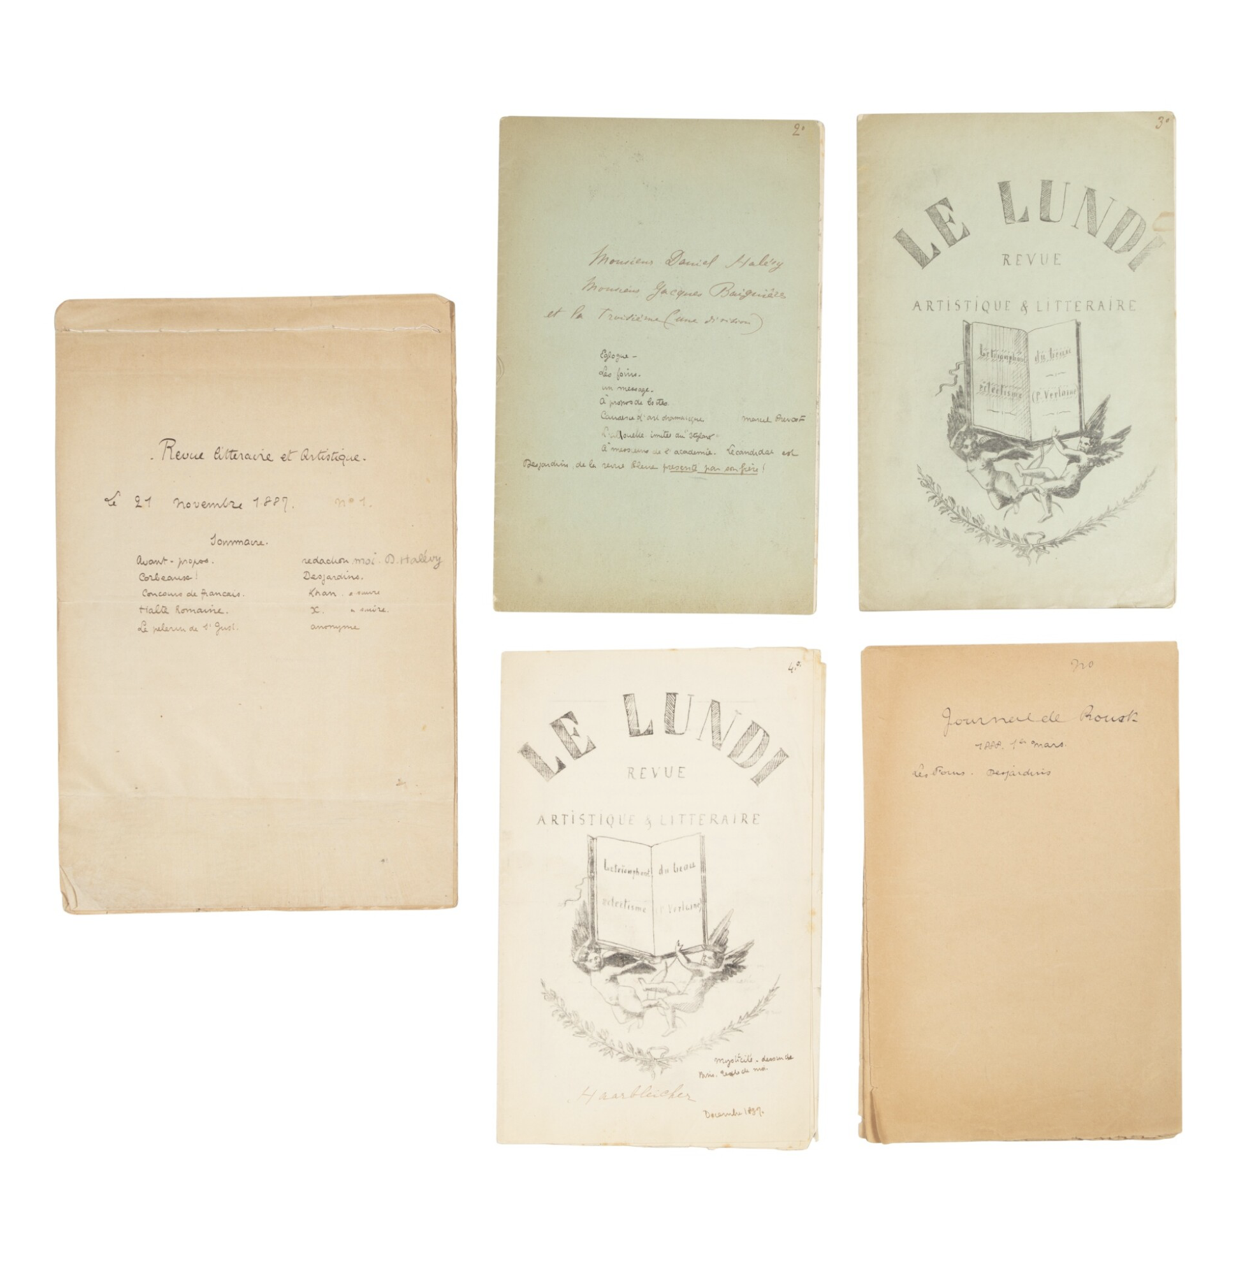 . Revue littéraire et artistique.
le 21 novembre 1887. n° 1.
Sommaire.
Avant-propos. redaction moi D. Halévy
Corbeaux! Desjardins.
Concours de francais. Khan. a suivre
Halte Romaine. X. a suivre
Le pelerin de
anonyme
2°
Monsieur Daniel Halévy
Monsieur Jacques Baignères
et la Troisième (une division)
Eglogue -
Les foins.
un message.
A propos de bottes
Causerie d'art dramatique Marcel Proust
A messieurs de l'academie. Le candidat est
Desjardins de la revue bleue présenté par son frère!
3°
LE LUNDI
REVUE
ARTISTIQUE & LITTERAIRE
Le triomphant du beau
eclectisme (P. Verlaine
4°
LE LUNDI
REVUE
ARTISTIQUE & LITTERAIRE
Le triomphant du beau
eclectisme (P. Verlaine
Haarbleicher
Decembre 1887.
Journal de
1888, 1er mars.
Desjardins